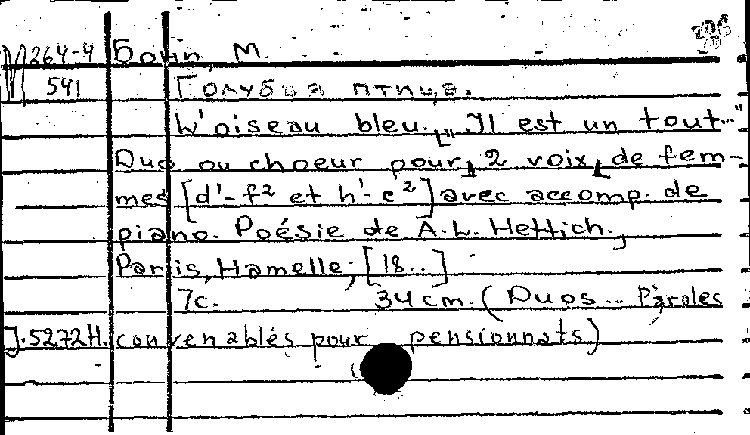 М 264-4 Бонн, М.
541 Голубая птица.
L'oiseau bleu. "Il est un tout..."
Duo ou choeur pour 2 voix de fem-
mes [d'-f² et h'-e²] avec accomp. de
piano. Poésie de A.L. Hettich.
Paris, Hamelle, [18..]
7c. 34 cm. (Duos... Paroles
J.5272H. convenables pour pensionnats)